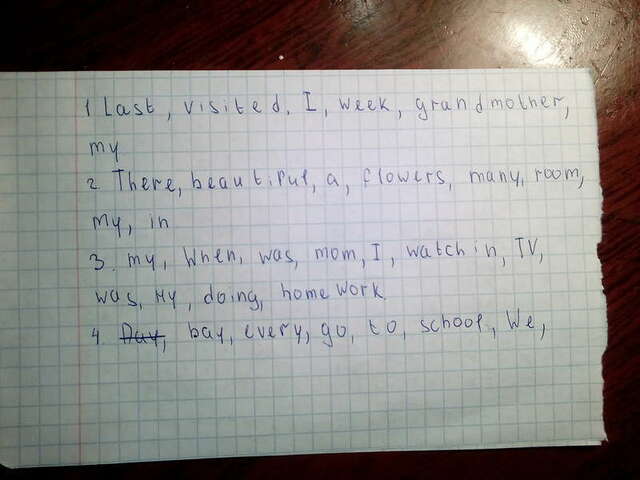 1 Last, visited, I, week, grandmother,
my
2 There, beautiful, a, flowers, many, room,
my, in
3. my, When, was, mom, I, watchin, TV,
was, my, doing, homework.
4 Day, bay, every, go, to, school, We,